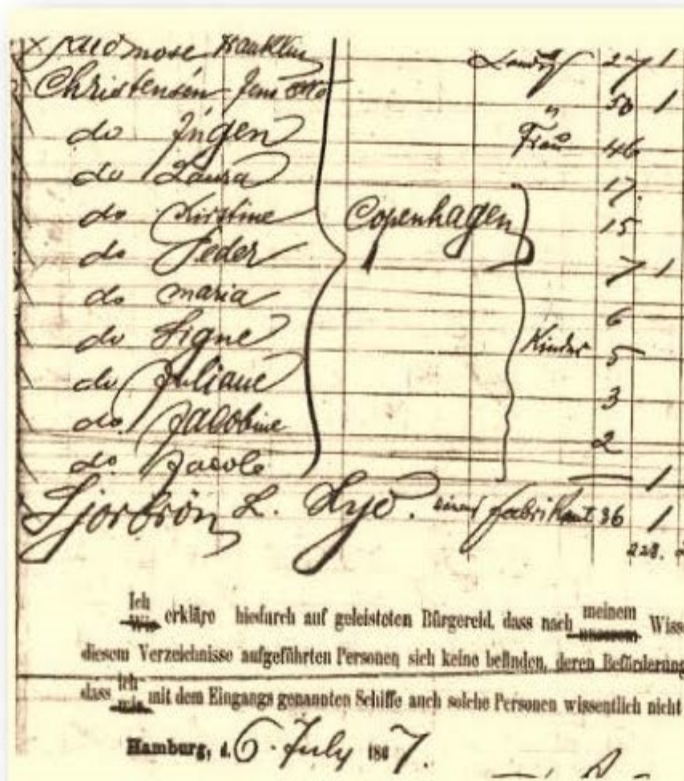 Landm 27 1
Christensen Jens Otto " 50 1
do Jngen Frau 46
do Laura 17
do Kirstine Copenhagen 15
do Peder 7 1
do maria 6
do Signe Kinder 5
do Juliane 3
do Jacobine 2
do Jacob 1
L. Fabrikant 36 1
228.
Ich erkläre hiedurch auf geleisteten Bürgereid, dass nach meinem Wisse
diesem Verzeichnisse aufgeführten Personen sich keine befinden, deren Beförderung
dass ich mit dem Eingangs genannten Schiffe auch solche Personen wissentlich nicht
Hamburg, d. 6. July 1867.